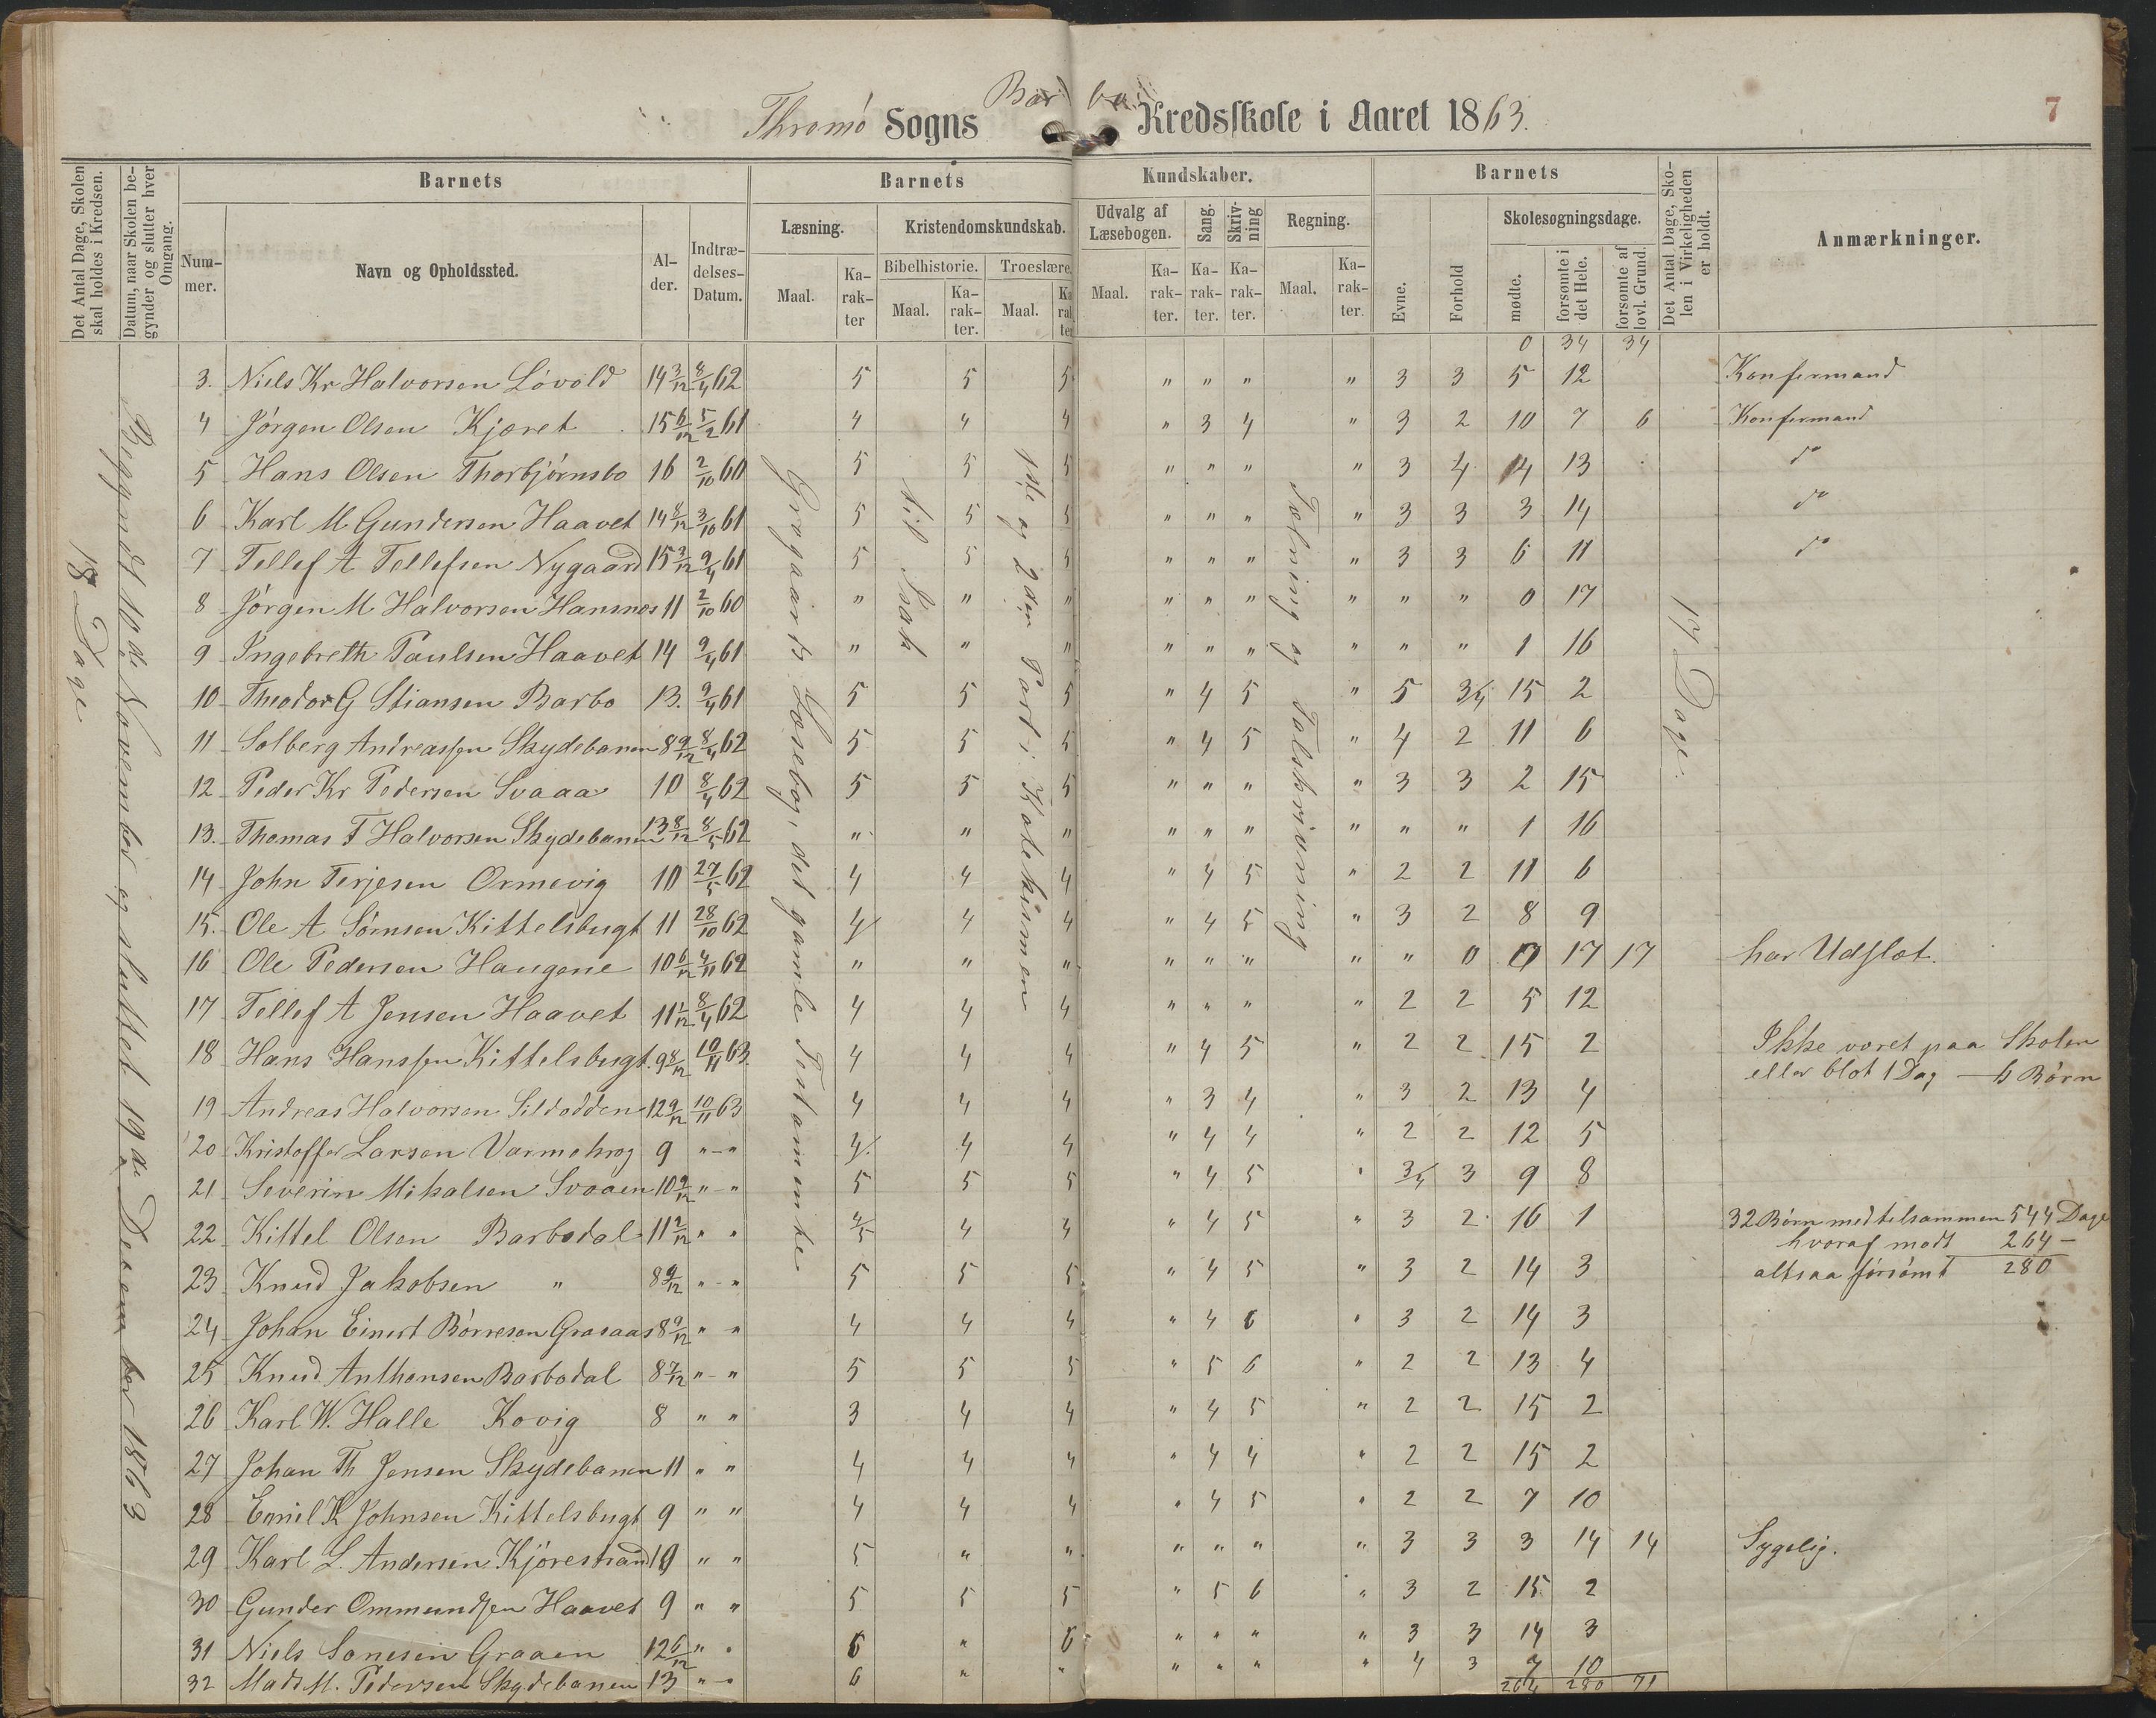 Thromø Sogns Barbo Kredsskole i Aaret 1863.
7
Det Antal Dage, Skolen skal holdes i Kredsen.
Datum, naar Skolen begynder og slutter hver Omgang.
Barnets
Barnets
Kundskaber.
Barnets
Det Antal Dage, Skolen i Virkeligheden er holdt.
Anmærkninger.
Nummer.
Navn og Opholdssted.
Alder.
Indtrædelses-Datum.
Læsning.
Kristendomskundskab.
Udvalg af Læsebogen.
Sang.
Skrivning
Regning.
Evne.
Forhold
Skolesøgningsdage.
Maal.
Karakter
Bibelhistorie.
Troeslære.
Maal.
Karakter.
Maal.
Karakter
Maal.
Karakter.
Karakter.
Karakter.
Maal.
Karakter.
mødte.
forsømte i det Hele.
forsømte af lovl. Grund.
18 Dage
Begyndt 10de November og sluttet 19de December 1863
Grøgaards Læsebog, det gamle Testamente
til Isak
1ste og 2den Part i Katekismen
Tælning og Talskrivning
17 Dage.
0 34 34
3. Niels Kr Halvorsen Løvold 14 3/12 8/4 62 5 5 5 " " " " 3 3 5 12 Konfirmand
4 Jørgen Olsen Kjæret 15 6/12 5/2 61 4 4 4 " 3 4 " 3 2 10 7 6 Konfirmand
5 Hans Olsen Thorbjørnsbo 16 2/10 60 5 5 5 " " " " 3 4 14 13 do
6 Karl M Gundersen Haavet 14 8/12 3/10 61 5 5 5 " " " " 3 3 3 14 do
7 Tellef A Tellefsen Nygaard 15 3/12 9/4 61 5 5 5 " " " " 3 3 6 11 do
8 Jørgen M Halvorsen Hansnæs 11 2/10 60 " " " " " " " " " 0 17
9 Ingebreth Paulsen Haavet 14 9/4 61 " " " " " " " " " 1 16
10 Theodor G Stiansen Barbo 13. 9/4 61 5 5 5 " 4 5 " 5 3/4 15 2
11 Solberg Andreassen Skydebanen 8 9/12 8/4 62 5 5 5 " 4 5 " 4 2 11 6
12 Peder Kr Pedersen Svaaa 10 8/4 62 5 5 5 " " " " 3 3 2 15
13. Thomas F Halvorsen Skydebanen 13 8/12 8/5 62 " " " " " " " " " 1 16
14 John Terjesen Ormevig 10 27/5 62 4 4 4 " 4 5 " 2 2 11 6
15. Ole A Sørnsen Kittelsbugt 11 28/10 62 4 4 4 " 4 5 " 3 2 8 9
16 Ole Pedersen Haugene 10 6/12 4/11 62 " " " " " " " " 0 0 17 17 har Udslæt.
17 Tellef A Jensen Haavet 11 1/12 8/4 62 4 4 4 " " " " 2 2 5 12
18 Hans Hanssen Kittelsbugt. 9 8/12 10/11 63. 4 4 4 " 4 5 " 2 2 15 2 Ikke været paa Skolen
eller blot 1 Dag — 6 Børn
19 Andreas Halvorsen Sildodden 12 9/12 10/11 63 4 4 4 " 3 4 " 3 2 13 4
20 Kristoffer Larsen Varmekrog 9 " - " 4 4 4 " 4 4 " 2 2 12 5
21 Severin Mikalsen Svaaen 10 9/12 " - " 5 5 5 " 4 5 " 3/4 3 9 8
22 Kittel Olsen Barbodal 11 2/12 " " 4/5 4 4 " 4 5 " 3 2 16 1 32 Børn med tilsammen 544 Dage
hvoraf mødt 264 —
23 Knud Jakobsen " 8 9/12 " - " 5 5 5 " 4 5 " 3 2 14 3 altsaa forsømt 280
24 Johan Einert Børresen Graaaas 8 9/12 " " 4 4 4 " 4 6 " 3 2 14 3
25 Knud Anthonsen Barbodal 8 7/12 " - " 5 5 5 " 5 6 " 2 2 13 4
26 Karl W. Halle Kovig 8 " " 3 4 4 " 4 5 " 2 2 15 2
27 Johan Th Jensen Skydebanen 11 " " 4 4 4 " 4 4 " 2 2 15 2
28 Emil K Johnsen Kittelsbugt 9 " " 4 4 4 " 4 5 " 2 2 7 10
29 Karl L. Andersen Kjørestrand 10 " " 5 " " " " " " 3 3 3 14 14 Sygelig.
30 Gunder Ommundsen Haavet 9 " " 5 5 5 " 5 6 " 3 2 15 2
31 Niels Sonesen Graaen 12 6/12 " " 6 " 6 " " " " 3 3 14 3
32 Mads M. Pedersen Skydebanen 13 " - " 6 " " " " " " 4 3 7 10
264 280 71